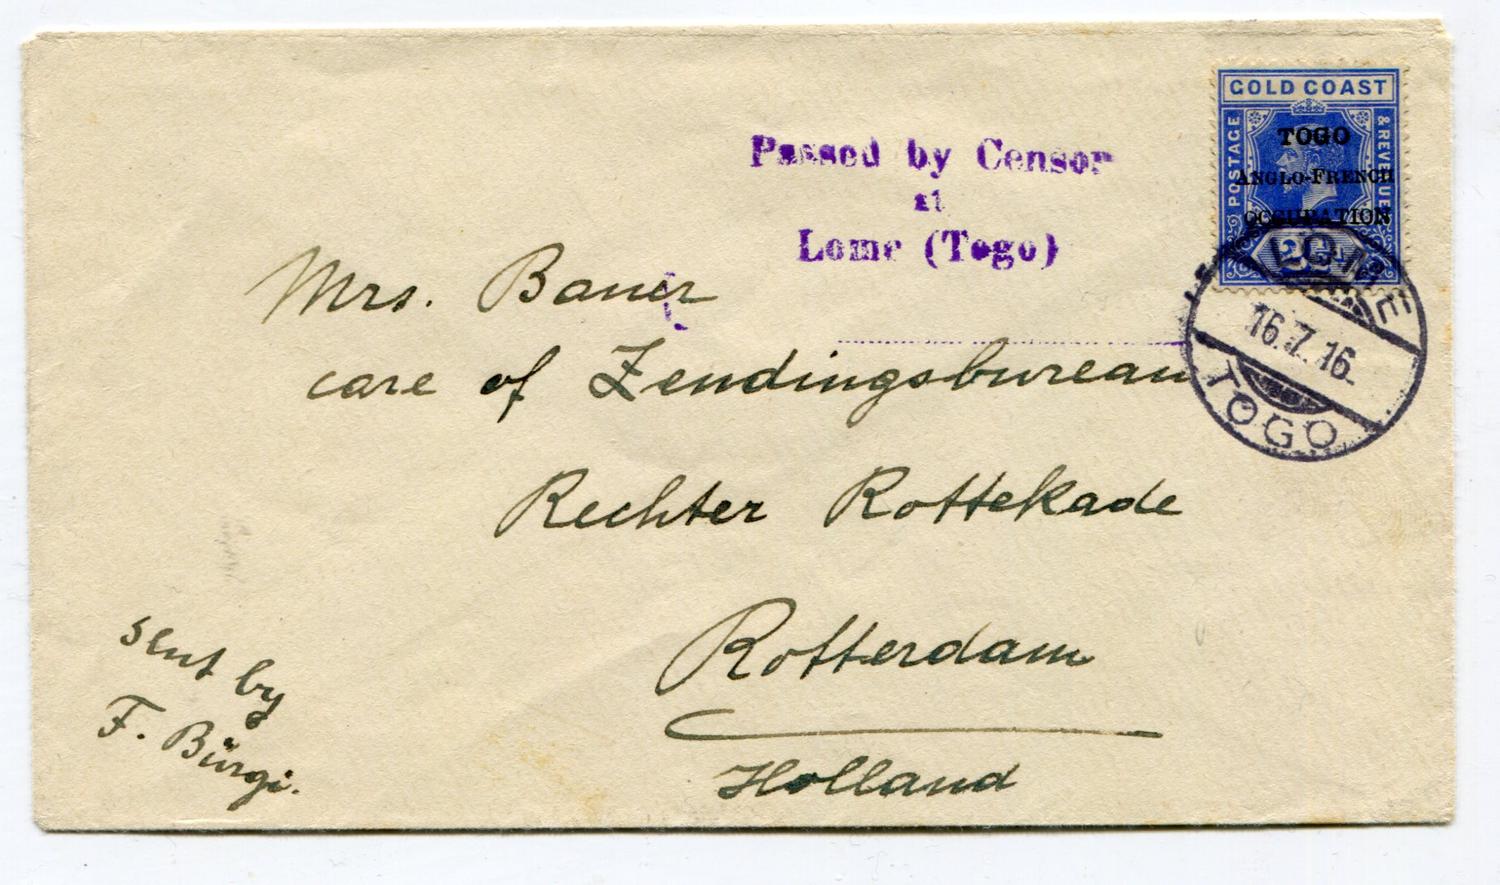 GOLD COAST
POSTAGE
& REVENUE
TOGO
ANGLO-FRENCH
OCCUPATION
Passed by Censor
at
Lome (Togo)
LOME
16.7.16.
TOGO
Mrs. Bauer
care of Zendingsbureau
Rechter Rottekade
Rotterdam
Holland
sent by
F. Bürgi.